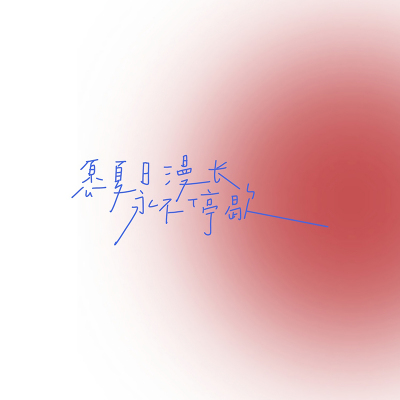 愿夏日漫长
永不停歇